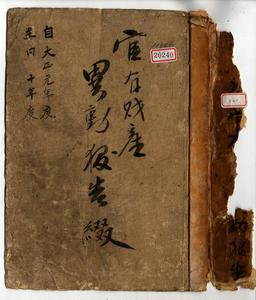 20240
官有財産
異動報告綴
自大正元年度
至同十年度